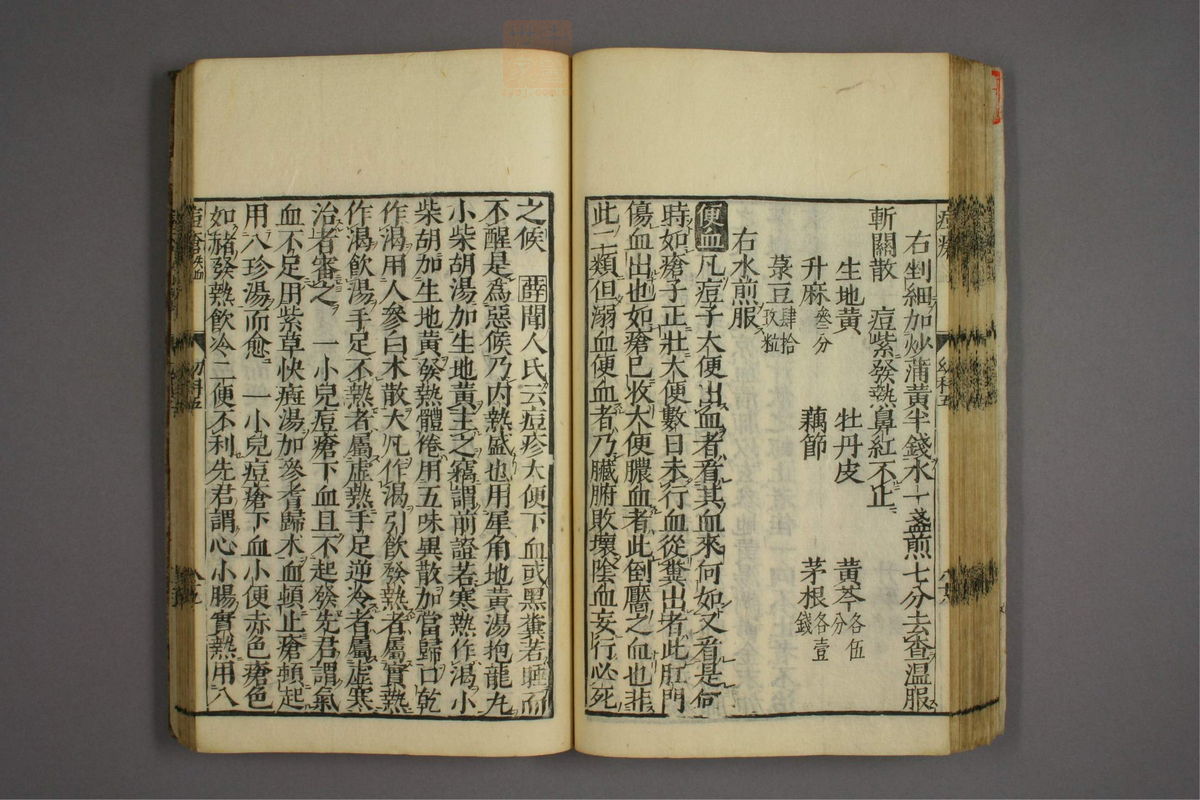 右剉細加炒蒲黃半錢水一盞煎七分去查溫服
斬關散　痘紫發熱鼻紅不止
生地黃　牡丹皮　黃芩各伍分
升麻叄分　藕節　茅根各壹錢
菉豆肆拾玖粒
右水煎服
便血凡痘子大便出血者看其血來何如又看是何
時如瘡子正壯大便數日未行血從糞出者此肛門
傷血出也如瘡已收大便膿血者此倒靨之血也非
此二類但溺血便血者乃臟腑敗壞陰血妄行必死
之候　薛聞人氏云痘疹大便下血或黑糞若睡而
不醒是爲惡候乃内熱盛也用犀角地黃湯抱龍丸
小柴胡湯加生地黃主之竊謂前證若寒熱作渴小
柴胡加生地黃發熱體倦用五味異散加當歸口乾
作渴用人參白朮散大凡作渴引飲發熱者屬實熱
作渴飲湯手足不熱者屬虛熱手足逆冷者屬虛寒
治者審之　一小兒痘瘡下血且不起發先君謂氣
血不足用紫草快癍湯加參耆歸朮血頓止瘡頓起
用八珍湯而愈　一小兒痘瘡下血小便赤色瘡色
如赭發熱飲冷二便不利先君謂心小腸實熱用八
痘瘡
幼科五